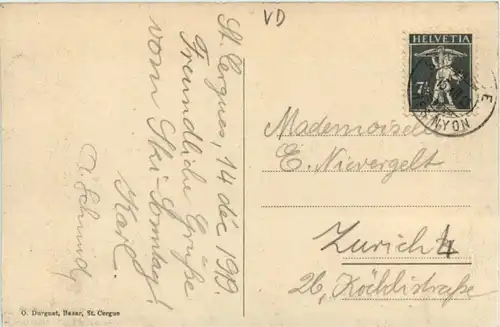 VD
HELVETIA
7½
NYON
St. Cergues, 14 déc 1919.
Freundliche Grüße
vom Ski-Sonntag!
Karl.
O. Schmid
Mademoiselle
E. Nievergelt
Zurich 4
26, Köchlistraße
O. Durgnat, Bazar, St. Cergue